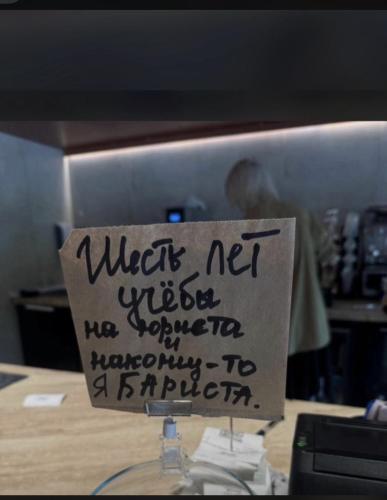 Шесть лет
учёбы
на юриста
и
наконец-то
я БАРИСТА.